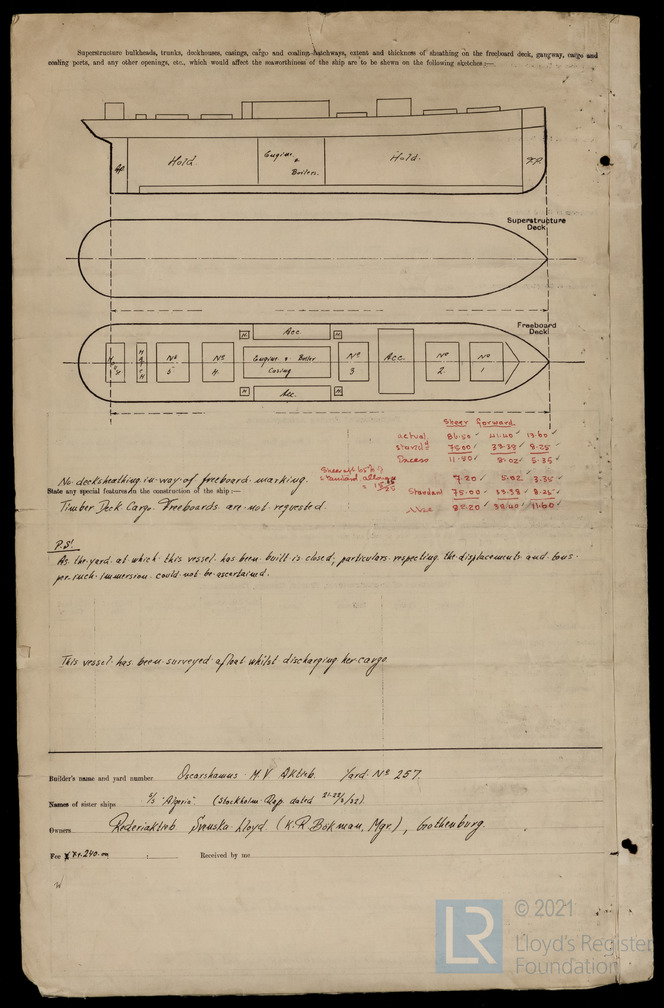 Superstructure bulkheads, trunks, deckhouses, casings, cargo and coaling hatchways, extent and thickness of sheathing on the freeboard deck, gangway, cargo and
coaling ports, and any other openings, etc., which would affect the seaworthiness of the ship are to be shewn on the following sketches:—
Hold.
Engine.
&
Boilers.
Hold.
F.P.
Superstructure
Deck
Freeboard
Deck
Acc.
H
H
Nº
5
Nº
4.
Engine & Boiler
Casing
Nº
3
Acc.
Nº
2.
Nº
1
H
Acc.
H
Sheer forward
actual 86.50 41.40 13.60
stand'd 75.00 33.38 8.25
Excess 11.50 8.02 5.35
7.20 5.02 3.35
Standard 75.00 33.38 8.25
82.20 38.40 11.60
No decksheathing in way of freeboard marking.
State any special features in the construction of the ship:—
Timber Deck Cargo Freeboards are not requested.
P.S!
As the yard at which this vessel has been built is closed, particulars respecting the displacements and tons
per inch immersion could not be ascertained.
This vessel has been surveyed afloat whilst discharging her cargo.
Builder's name and yard number Oscarshamns M.V. Aktieb. Yard Nº 257.
Names of sister ships S/S "Algeria" (Stockholm Rap. dated 21-22/3/32).
Owners Rederiaktieb. Svenska Lloyd (K.R. Bökman, Mgr.), Gothenburg.
Fee Kr. 240.00 Received by me
© 2021
LR
Lloyd's Register
Foundation